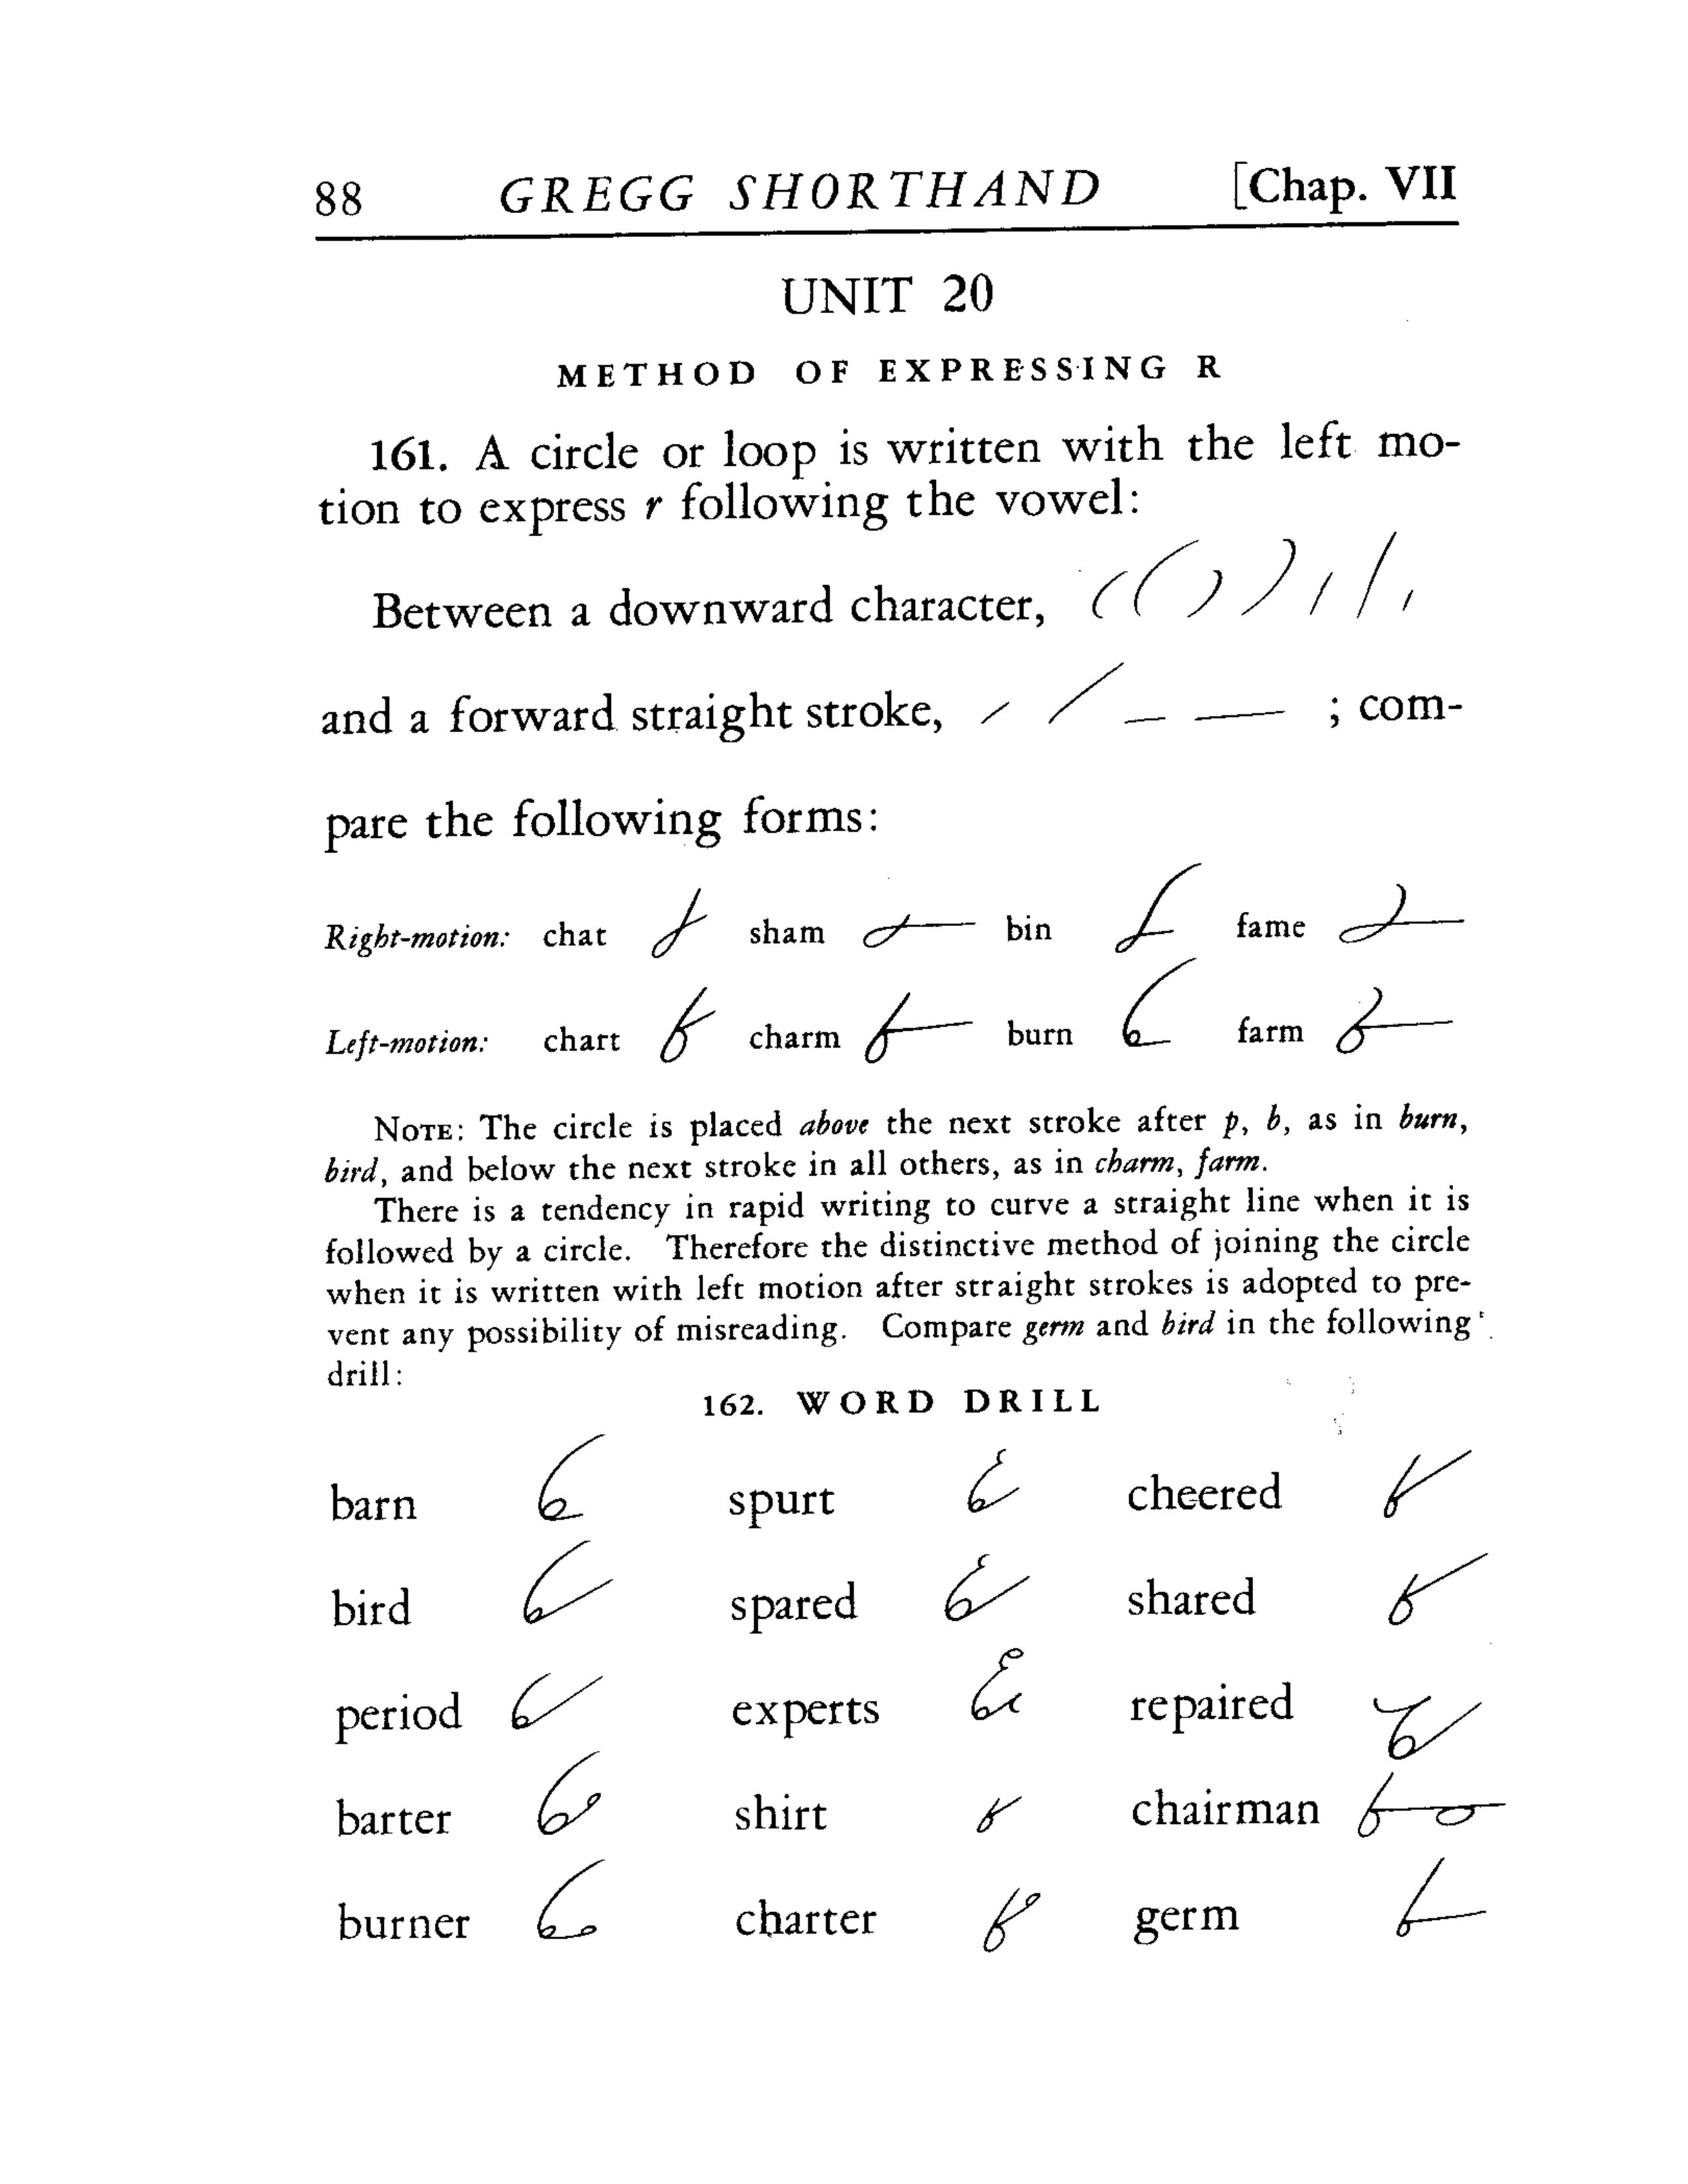 88 GREGG SHORTHAND [Chap. VII
UNIT 20
METHOD OF EXPRESSING R
161. A circle or loop is written with the left mo-
tion to express r following the vowel:
Between a downward character,
and a forward straight stroke, ; com-
pare the following forms:
Right-motion: chat sham bin fame
Left-motion: chart charm burn farm
NOTE: The circle is placed above the next stroke after p, b, as in burn,
bird, and below the next stroke in all others, as in charm, farm.
There is a tendency in rapid writing to curve a straight line when it is
followed by a circle. Therefore the distinctive method of joining the circle
when it is written with left motion after straight strokes is adopted to pre-
vent any possibility of misreading. Compare germ and bird in the following
drill:
162. WORD DRILL
barn spurt cheered
bird spared shared
period experts repaired
barter shirt chairman
burner charter germ